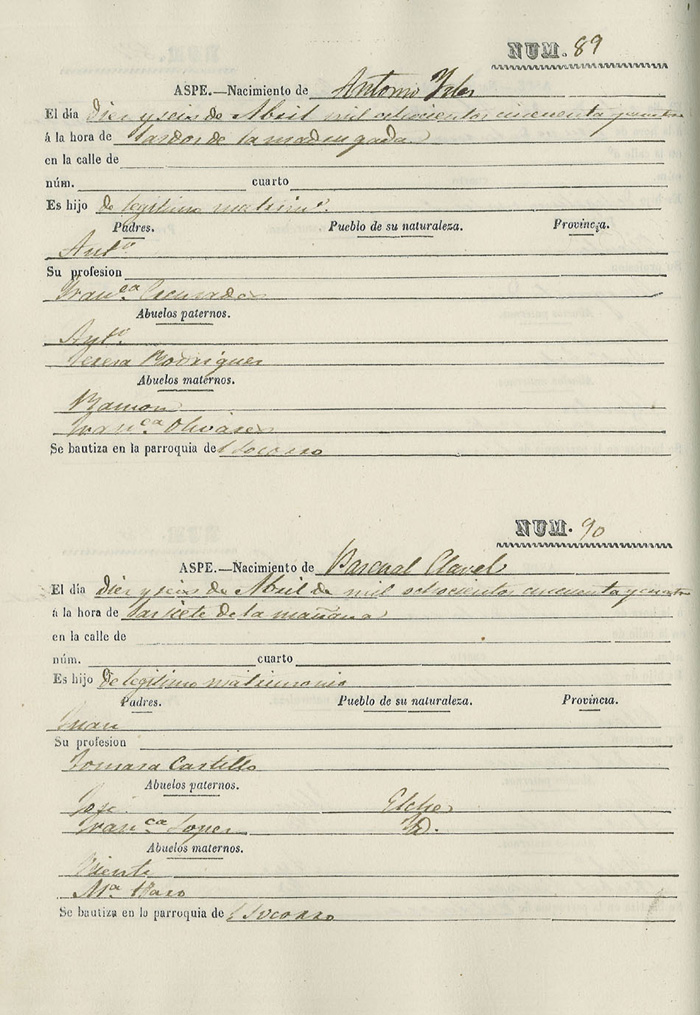 NUM. 89
ASPE.—Nacimiento de Antonio
El día Diez y seis de Abril mil ochocientos cincuenta y cuatro
á la hora de las dos de la madrugada
en la calle de
núm. cuarto
Es hijo de legitimo matrimo.
Padres. Pueblo de su naturaleza. Provincia.
Anto
Su profesion
Franca
Abuelos paternos.
Anto
Teresa Rodriguez
Abuelos maternos.
Ramon
Franca Olivares
Se bautiza en la parroquia de Socorro
NUM. 90
ASPE.—Nacimiento de Pascual Clavel
El día Diez y seis de Abril de mil ochocientos cincuenta y cuatro
á la hora de las siete de la mañana
en la calle de
núm. cuarto
Es hijo de legitimo matrimonio
Padres. Pueblo de su naturaleza. Provincia.
Juan
Su profesion
Tomasa Castillo
Abuelos paternos.
José Elche
Franca Lopez Yd.
Abuelos maternos.
Vicente
Ma Haro
Se bautiza en la parroquia de Socorro